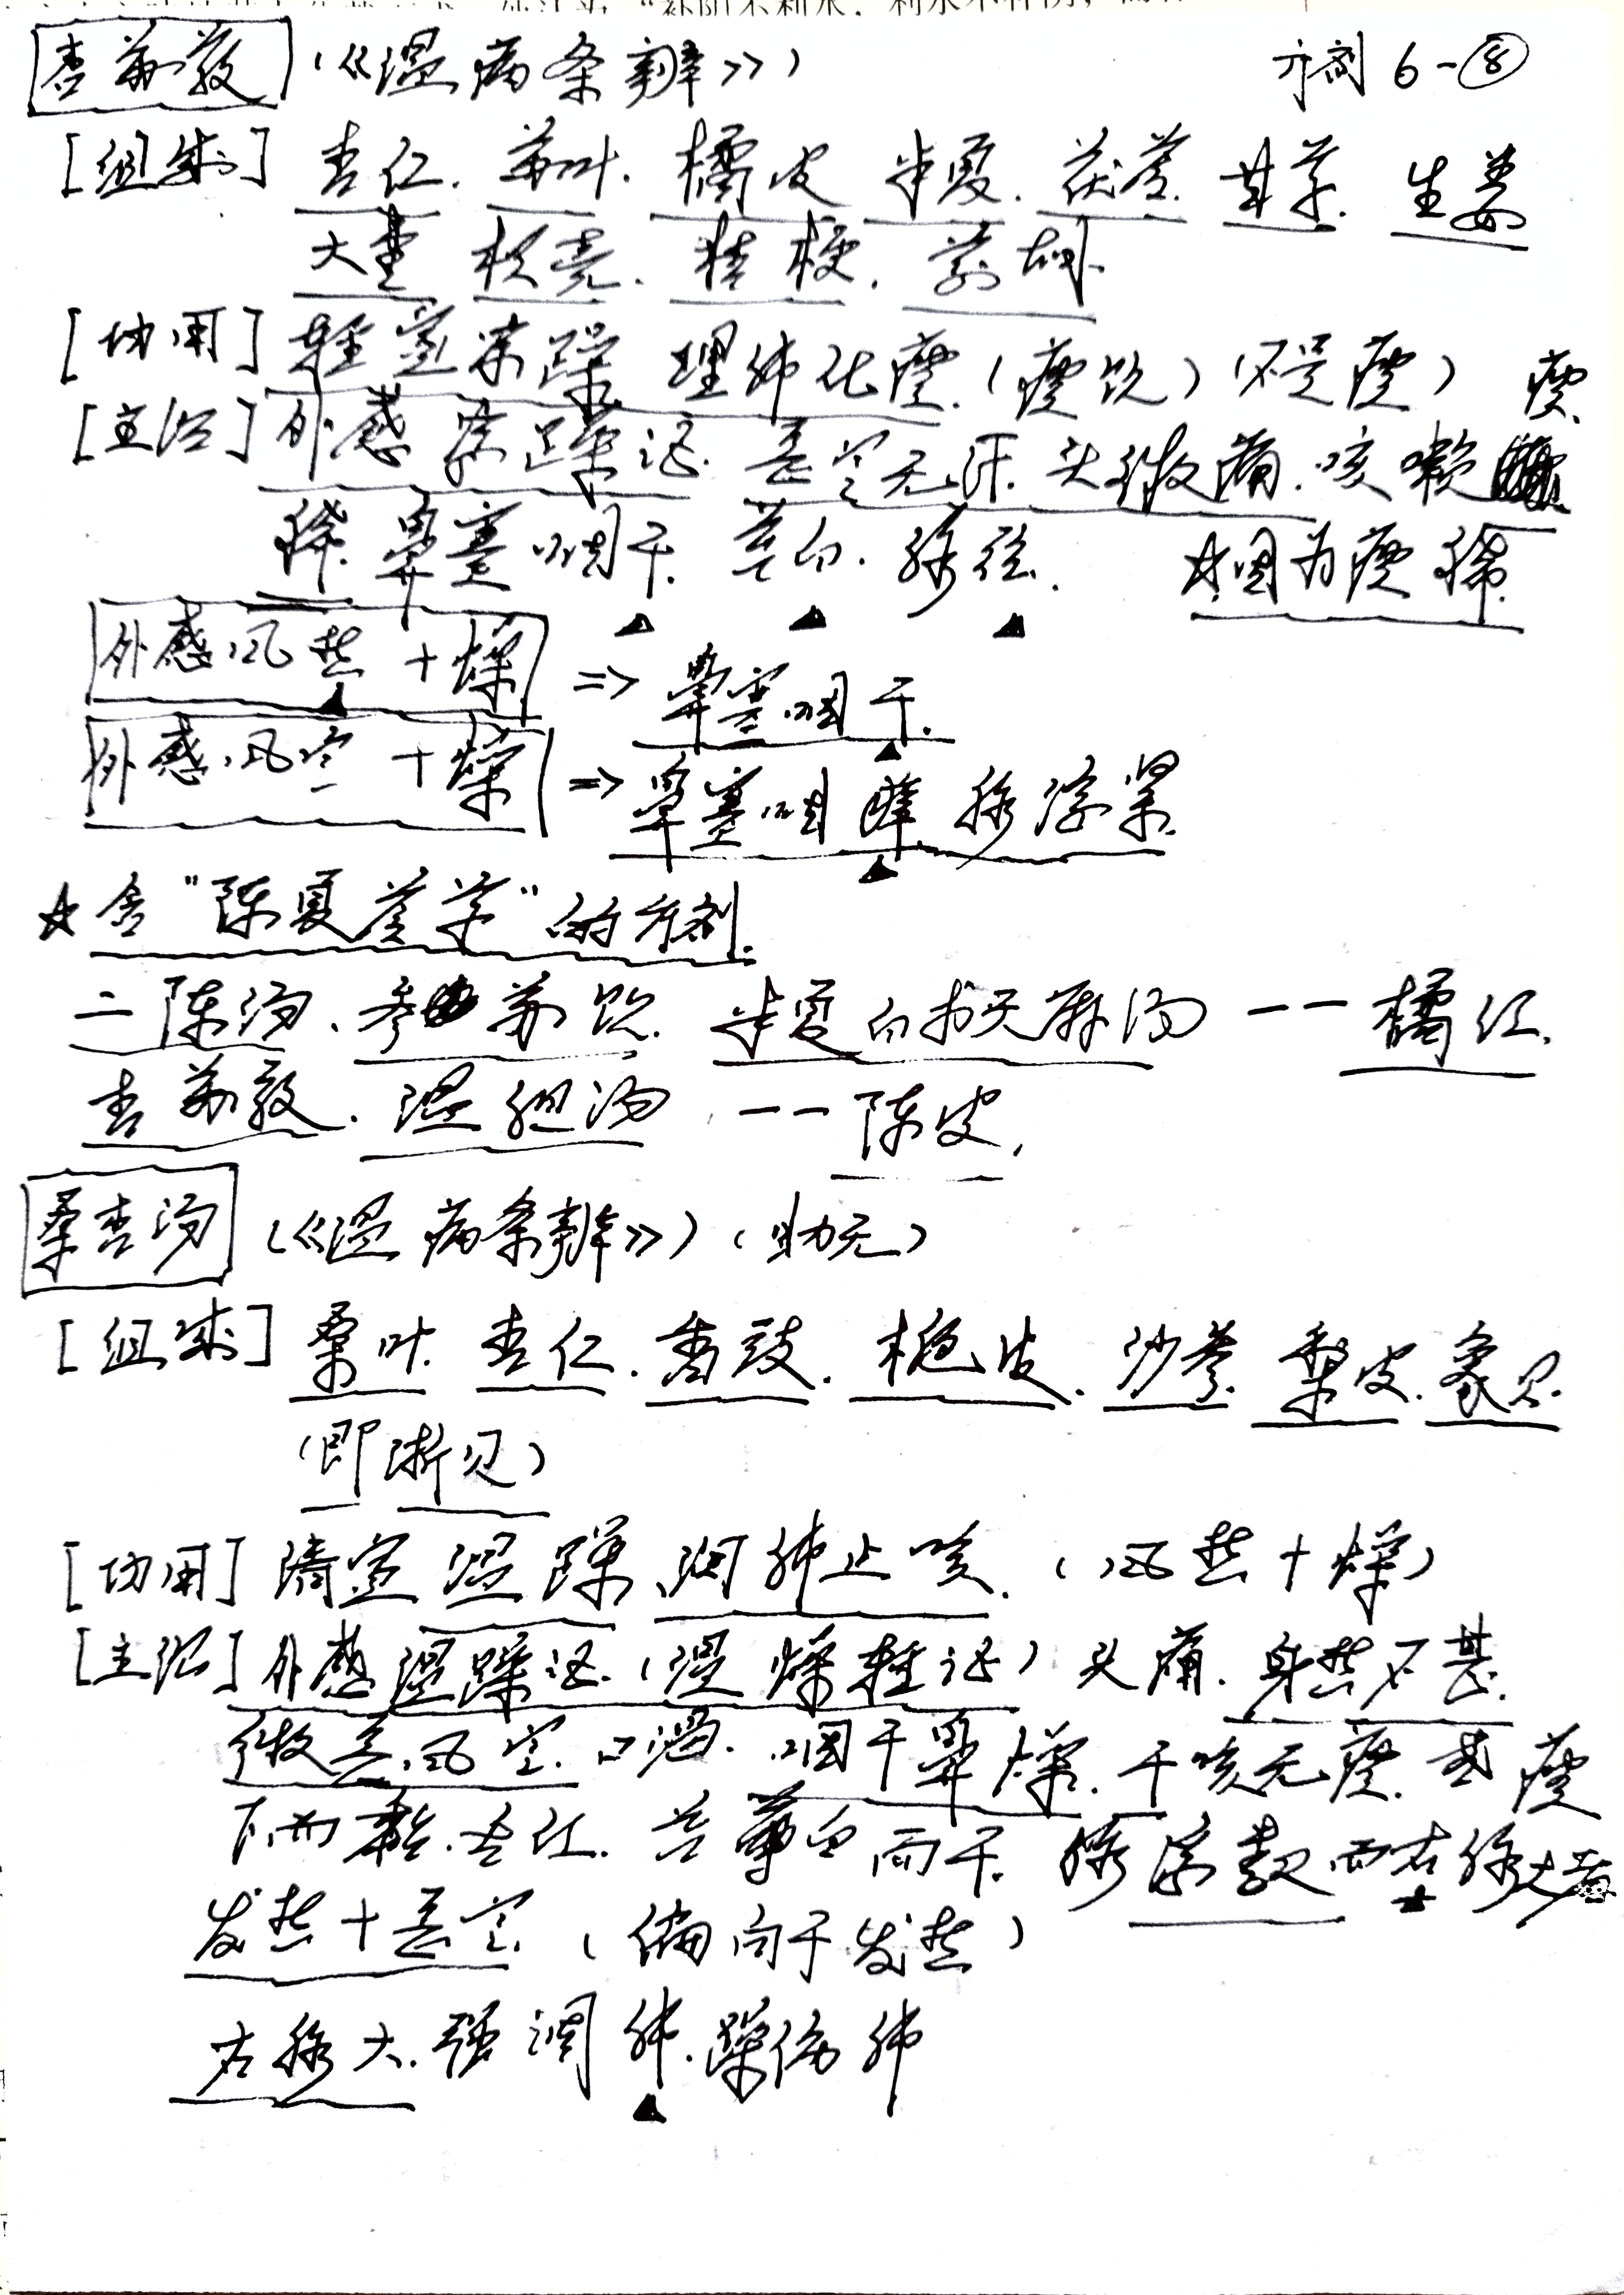 杏苏散（《温病条辨》）
方剂 6-⑧
[组成] 杏仁. 苏叶. 橘皮 半夏. 茯苓. 甘草. 生姜
大枣 枳壳. 桔梗. 前胡.
[功用] 轻宣凉燥 理肺化痰.（痰饮）（不是痰） 痰
[主治] 外感凉燥证. 恶寒无汗. 头微痛. 咳嗽
稀. 鼻塞咽干. 苔白. 脉弦. ☆因为痰稀.
外感风热 + 燥 => 鼻塞咽干.
外感风寒 + 燥 => 鼻塞咽 脉浮紧.
☆含"陈夏苓草"的方剂.
二陈汤、参苏饮. 半夏白术天麻汤 -- 橘红.
杏苏散. 温胆汤 -- 陈皮.
桑杏汤（《温病条辨》）（助无）
[组成] 桑叶. 杏仁. 香豉. 栀皮. 沙参. 梨皮. 象贝.
（即浙贝）
[功用] 清宣温燥 润肺止咳.（风热+燥）
[主治] 外感温燥证.（温燥轻证）头痛. 身热不甚.
微恶风寒. 口渴. 咽干鼻燥. 干咳无痰. 或痰
少而黏. 舌红. 苔薄白而干. 脉浮数而右脉大者
发热+恶寒.（偏向于发热）
右脉大. 强调肺. 燥伤肺